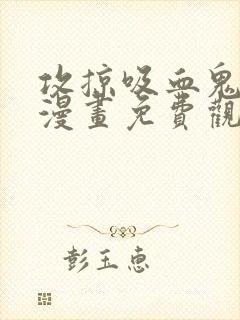 攻掠吸血鬼
漫畫免費觀
彭玉惠